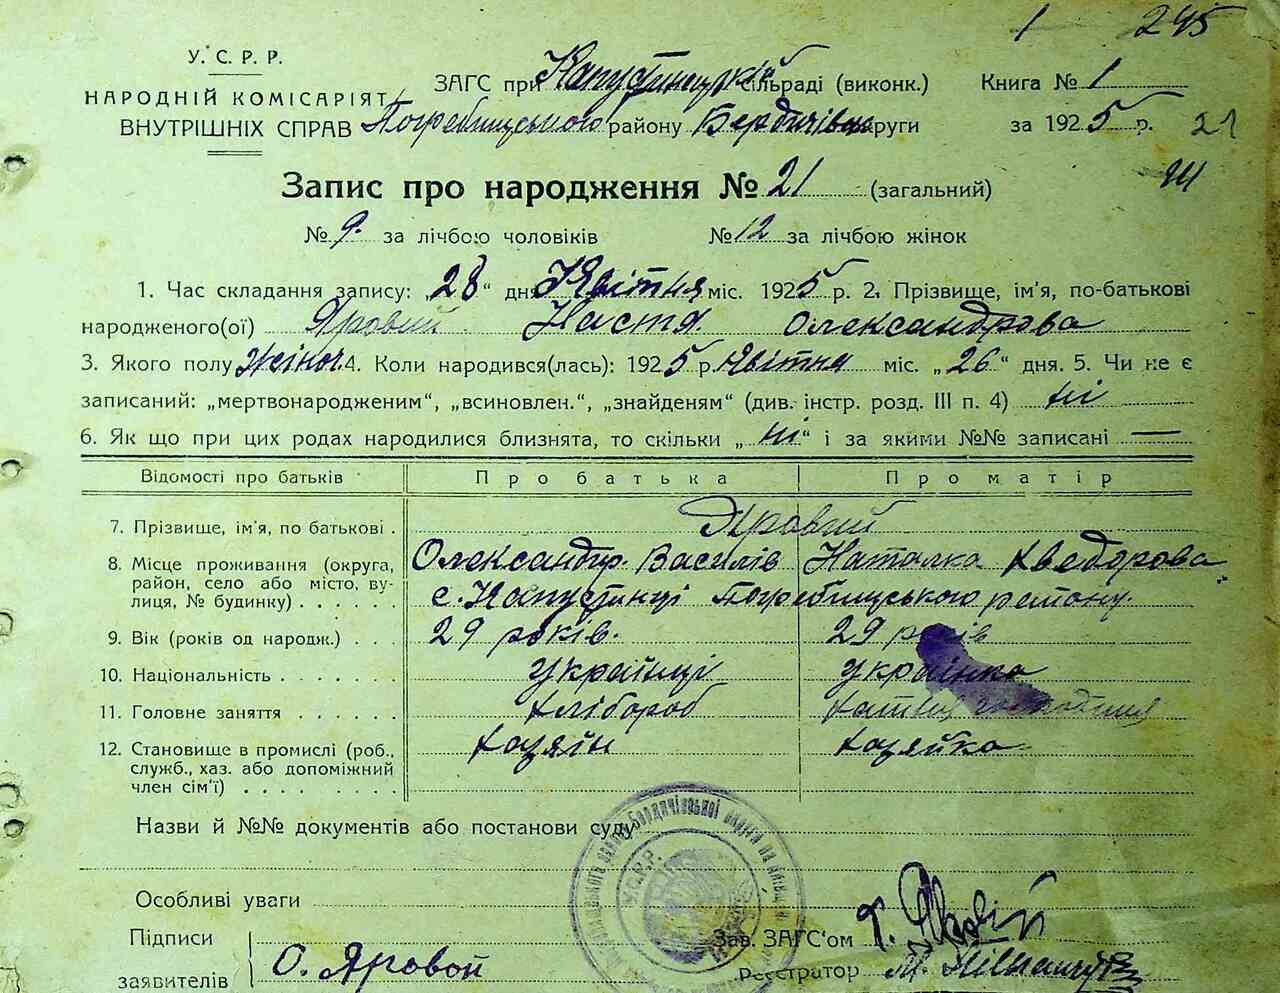 1 245
У.С.Р.Р.
НАРОДНІЙ КОМІСАРІЯТ
ВНУТРІШНІХ СПРАВ
ЗАГС при Капустинській сільраді (виконк.) Книга № 1
Погребищського району Бердичівськ округи за 1925 р. 21
Запис про народження № 21 (загальний)
№ 9. за лічбою чоловіків № 12 за лічбою жінок
1. Час складання запису: „28“ дня Квітня міс. 1925 р. 2. Прізвище, ім'я, по-батькові
народженого(ої) Яровий Настя Олександрова
3. Якого полу Жіноч. 4. Коли народився(лась): 1925 р. Квітня міс. „26“ дня. 5. Чи не є
записаний: „мертвонародженим“, „всиновлен.“, „знайденям“ (див. інстр. розд. III п. 4) ні
6. Як що при цих родах народилися близнята, то скільки „ні“ і за якими №№ записані —
Відомості про батьків Про батька Про матір
7. Прізвище, ім'я, по батькові . Яровий
Олександр. Василів Наталка Хведорова
8. Місце проживання (округа,
район, село або місто, ву-
лиця, № будинку) . . . . . . с. Капустинці Погребищського району.
9. Вік (років од народж.) . . . 29 років. 29 років
10. Національність . . . . . . . українці українка
11. Головне заняття . . . . . . хлібороб хатня господиня
12. Становище в промислі (роб.,
служб., хаз. або допоміжний
член сім'ї) . . . . . . . . . хазяїн хазяйка
Назви й №№ документів або постанови суду
У.С.Р.Р.
Особливі уваги
Підписи
заявителів О. Яровой
Зав. ЗАГС'ом
Реєстратор